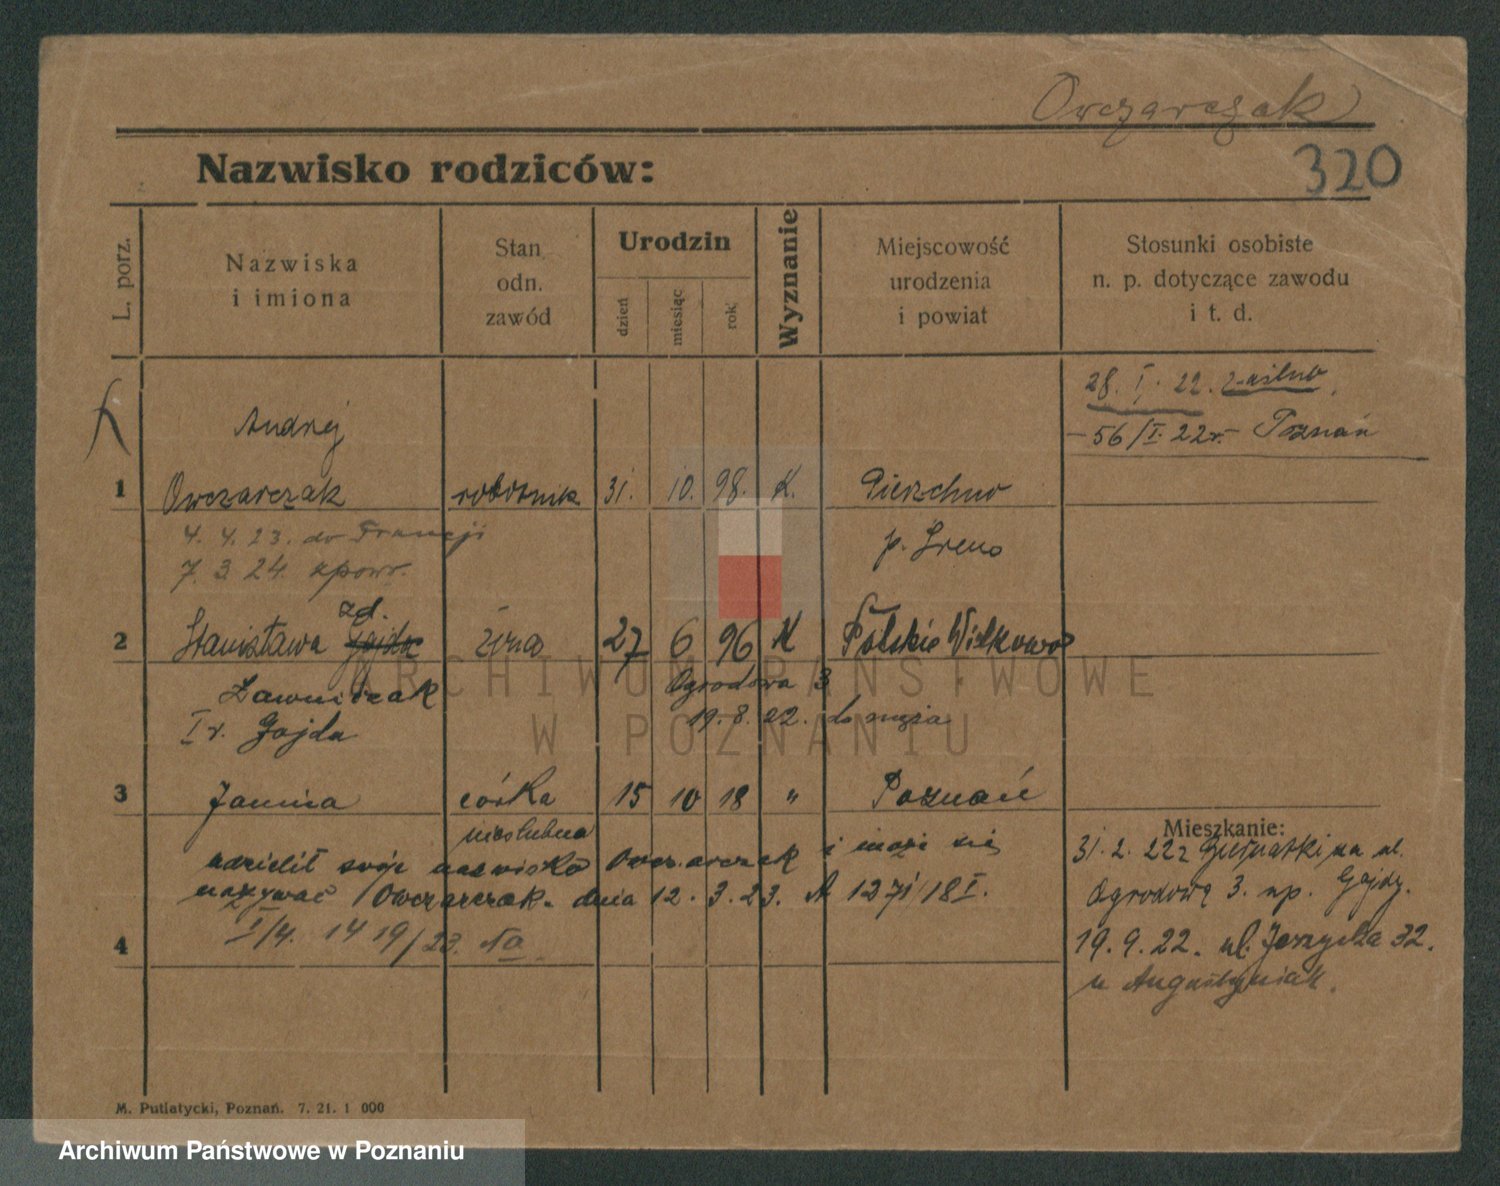 Owczarczak
320
Nazwisko rodziców:
L. porz.
Nazwiska
i imiona
Stan
odn.
zawód
Urodzin
dzień
miesiąc
rok
Wyznanie
Miejscowość
urodzenia
i powiat
Stosunki osobiste
n. p. dotyczące zawodu
i t. d.
28. I. 22.
56/I. 22r. Poznań
Andrzej
1 Owczarczak robotnik 31. 10. 98. K. Pierzchno
p. Śrem
4. 4. 23. do Francji
7. 3. 24. z powr.
zd.
2 Stanisława Gajda żona 27 6 96 K Polskie Wilkowo
Ławniczak
I v. Gajda
Ogrodowa 3
19. 8. 22. do męża
3 Janina córka 15 10 18 " Poznań
nieślubna
udzielił swoje nazwisko Owczarczak i może się
nazywać Owczarczak. dnia 12. 3. 23. 1271/18 I.
II/4. 1419/23.
4
Mieszkanie:
31. 2. 22 na ul.
Ogrodową 3. np. Gajdy.
19. 9. 22. ul. 32.
u Augustyniak.
M. Putiatycki, Poznań. 7. 21. 1 000
ARCHIWUM PAŃSTWOWE
W POZNANIU
Archiwum Państwowe w Poznaniu